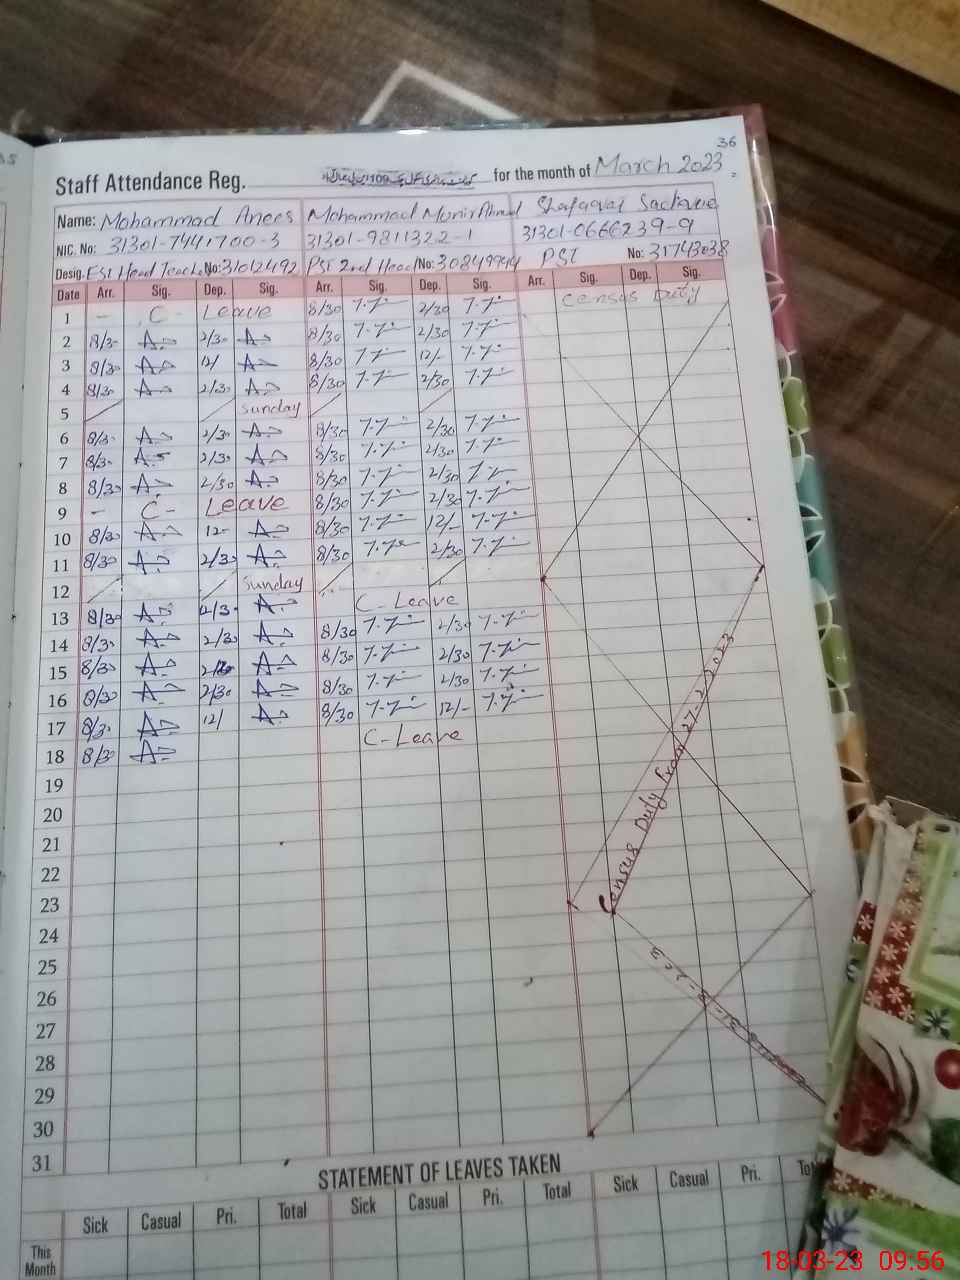 36
Staff Attendance Reg. for the month of March 2023
Name: Mohammad Anees Mohammad Munir Ahmad
NIC. No: 31301-7441700-3 31301-9811322-1 31301-0666239-9
Desig. EST Head Teacher No: 31012492 PST 2nd Head No: PST No: 31743038
Date Arr. Sig. Dep. Sig. Arr. Sig. Dep. Sig. Arr. Sig. Dep. Sig.
1 - C- Leave 8/30 2/30 Census Duty
2 8/30 2/30 8/30 2/30
3 8/30 12/ 8/30 12/-
4 8/30 2/30 8/30 2/30
5 Sunday
6 8/30 2/30 8/30 2/30
7 8/30 2/30 8/30 2/30
8 8/30 2/30 8/30 2/30
9 - C- Leave 8/30 2/30
10 8/30 12- 8/30 12/-
11 8/30 2/30 8/30 2/30
12 Sunday
13 8/30 2/30 C-Leave
14 8/30 2/30 8/30 2/30
15 8/30 2/30 8/30 2/30
16 8/30 2/30 8/30 2/30
17 8/30 12/ 8/30 12/-
18 8/30 C-Leave
19
20
21
22
23
24
25
26
27
28
29
30
31
Census Duty From 27-2-2023
STATEMENT OF LEAVES TAKEN
Sick Casual Pri. Total Sick Casual Pri. Total Sick Casual Pri.
This
Month
18-03-23 09:56